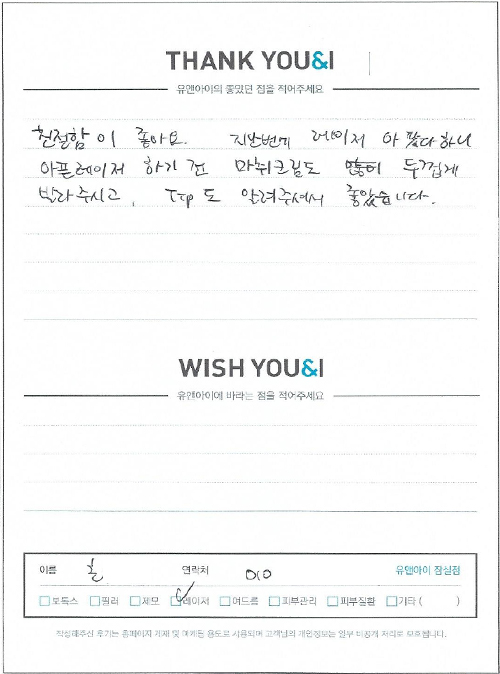 THANK YOU&I
유앤아이의 좋았던 점을 적어주세요
친절함이 좋아요. 지난번에 레이저 아팠다하니
아플레이저 하기 전 마취크림도 많이 두껍게
발라주시고, Tip도 알려주셔서 좋았습니다.
WISH YOU&I
유앤아이에 바라는 점을 적어주세요
이름 연락처 010 유앤아이 잠실점
보톡스 필러 제모 레이저 여드름 피부관리 피부질환 기타 ( )
작성해주신 후기는 홈페이지 게재 및 마케팅 용도로 사용되며 고객님의 개인정보는 일부 비공개 처리로 보호됩니다.